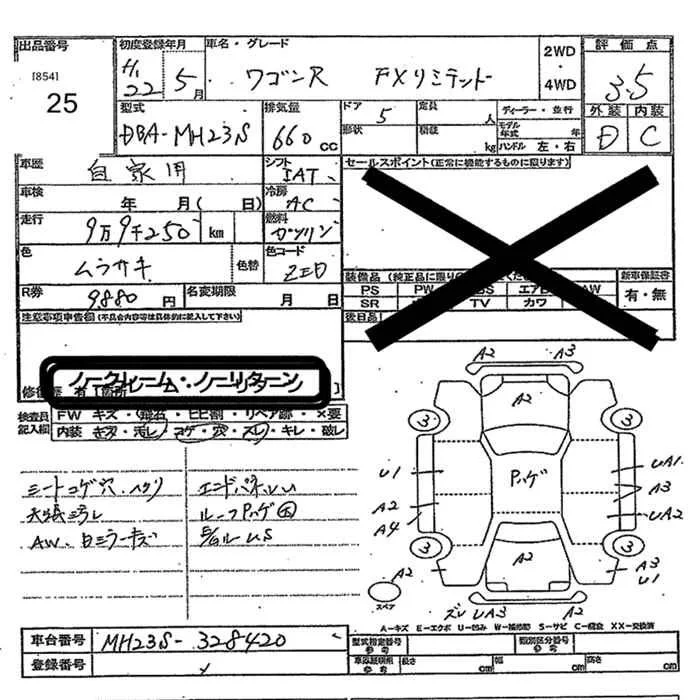 出品番号 初度登録年月 車名・グレード 2WD・4WD 評価点
[854] 25
H22 5月 ワゴンR FXリミテッド 3.5
型式 排気量 ドア 定員 ディーラー・並行 外装 内装
DBA-MH23S 660cc 5 人 モデル年式 年 D C
形状 積載 kg ハンドル 左・右
車歴 自家用 シフト IAT セールスポイント(正常に機能するものに限ります)
車検 年 月( 日) 冷房 AC
走行 9万9千250 km 燃料 ガソリン
色 ムラサキ 色替 色コード ZED
装備品 (純正品に限り 新車保証書
PS PW エアB AW 有・無
SR TV カワ
R券 9880円 名変期限 月 日
後日品
注意事項申告欄(不具合内容等は具体的に記入して下さい)
ノークレーム・ノーリターン
修復歴 有 [箇所 ]
検査員記入欄 FW キズ・飛石・ヒビ割・リペア跡・×要
内装 キズ・汚レ・コゲ・穴・スレ・キレ・破レ
シートコゲ穴、ヘタリ エンドパネルU
天張ミラレ ルーフハゲ大
AW、
A2 A3
A2
3 3
U1 ハゲ UA1
A3
A2 UA2
A4
3 3
A2
A2 A3
U1
スペア
ズレ UA3 A2
A-キズ E-エクボ U-凹み W-補修跡 S-サビ C-腐食 XX-交換済
車台番号 MH23S-328420
登録番号
型式指定番号 参考 類別区分番号 参考
車庫証明用 参考 長さ cm 幅 cm 高さ cm